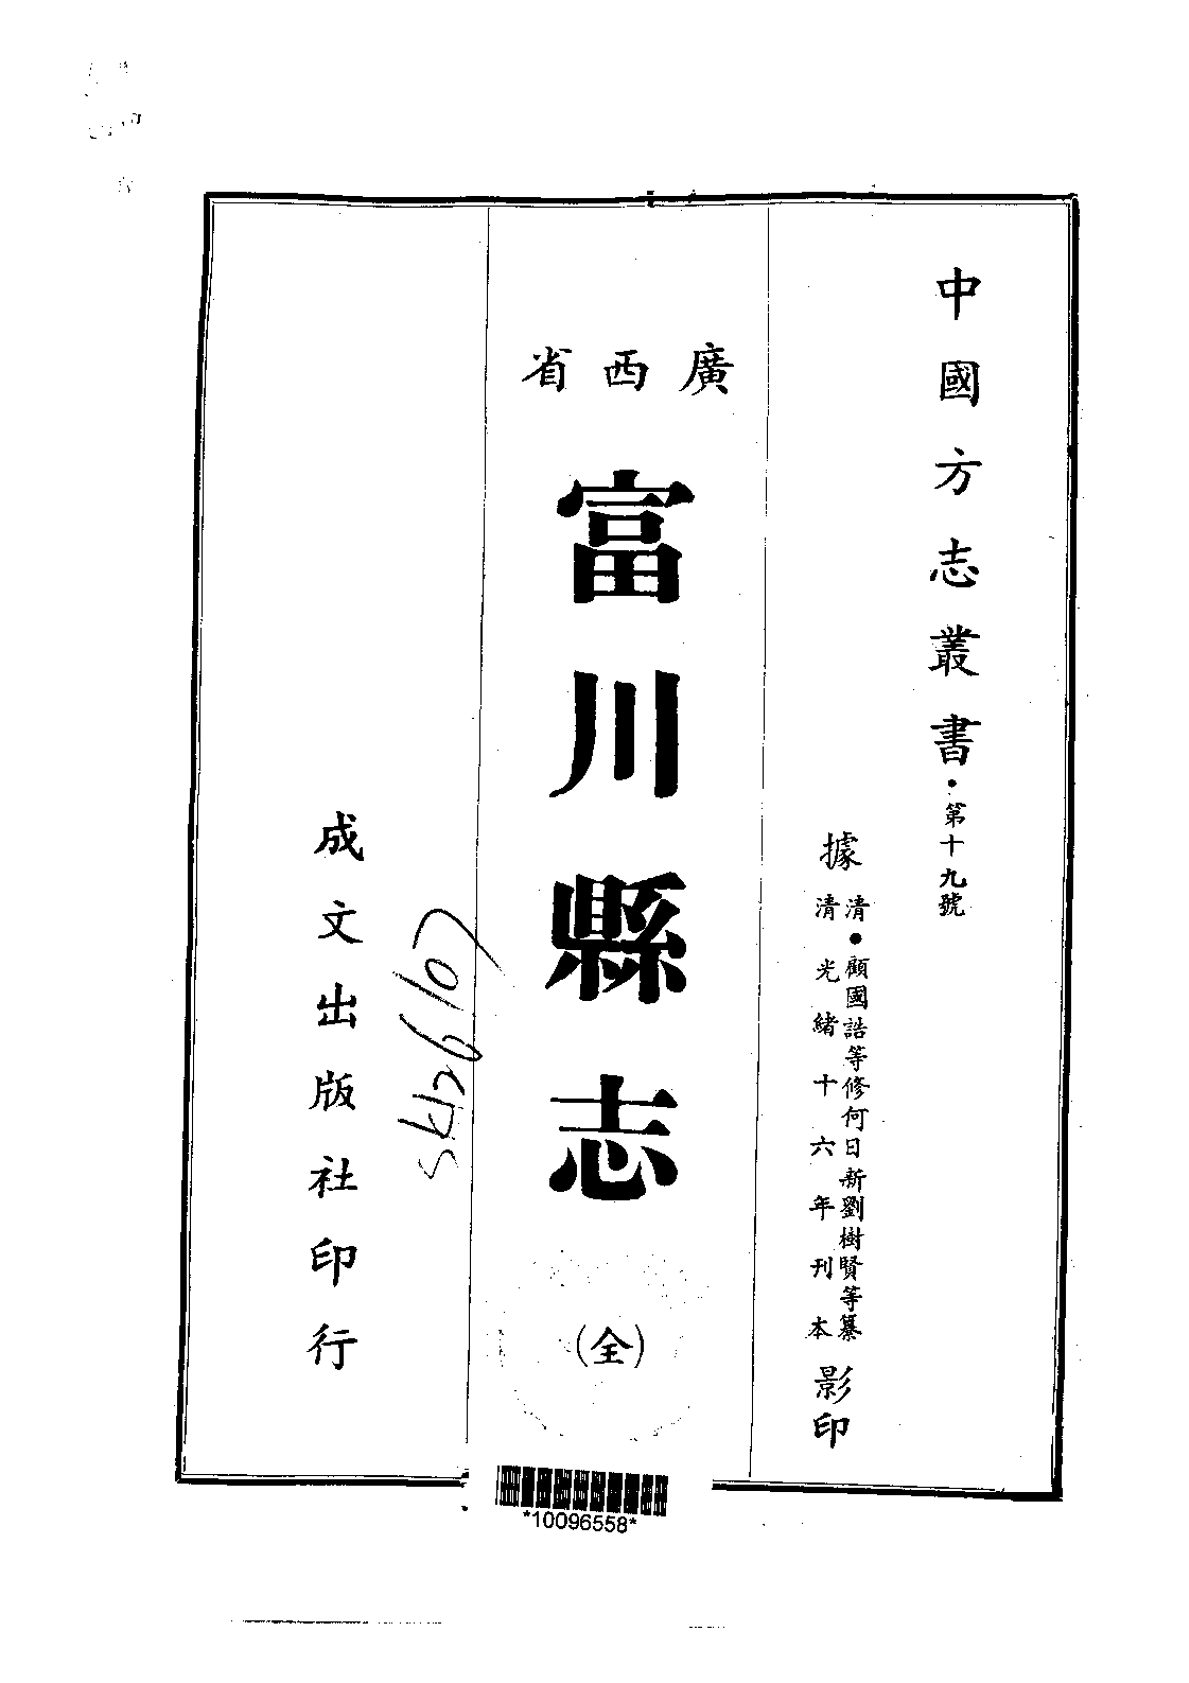 中國方志叢書・第十九號
據
清・顧國誥等修何日新劉樹賢等纂
清光緒十六年刊本
影印
廣西省
富川縣志
(全)
成文出版社印行
*10096558*